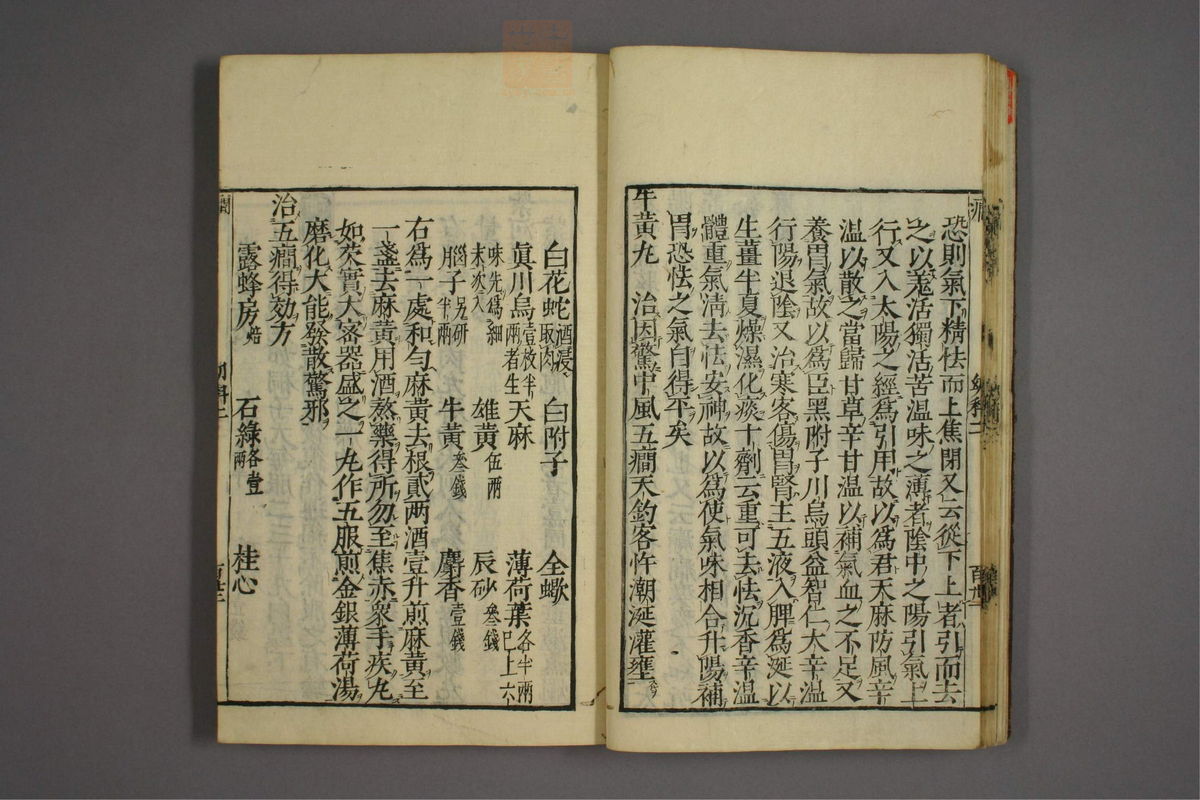 恐則氣下精怯而上焦閉又云從下上者引而去
之以羗活獨活苦温味之薄者陰中之陽引氣上
行又入太陽之經爲引用故以爲君天麻防風辛
温以散之當歸甘草辛甘温以補氣血之不足又
養胃氣故以爲臣黑附子川烏頭益智仁大辛温
行陽退陰又治寒客傷胃腎主五液入脾爲涎以
生薑半夏燥濕化痰十劑云重可去怯沉香辛温
體重氣清去怯安神故以爲使氣味相合升陽補
胃恐怯之氣自得平矣
牛黄丸 治因驚中風五癎天釣客忤潮涎灌壅
白花蛇酒浸取肉 白附子 全蠍
眞川烏壹枚半兩者生 天麻 薄荷葉各半兩已上六
味先爲細末次入 雄黄伍兩 辰砂叁錢
腦子另研半兩 牛黄叁錢 麝香壹錢
右爲一處和勻麻黄去根貳两酒壹升煎麻黄至
一盞去麻黄用酒熬藥得所勿至焦赤衆手疾丸
如芡實大宻器盛之一丸作五服煎金銀薄荷湯
磨化大能發散驚邪
治五癎得効方
露蜂房焙 石綠各壹兩 桂心